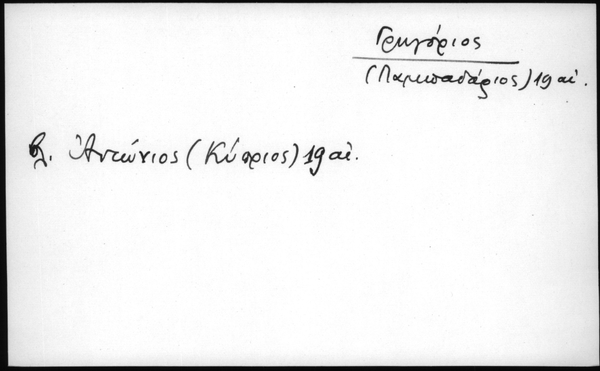 Γρηγόριος
(Λαμπαδάριος) 19 αἰ.
βλ. Ἀντώνιος (Κύπριος) 19 αἰ.